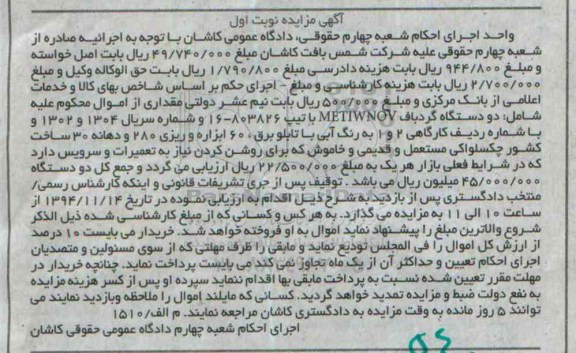 آگهی مزایده نوبت اول
واحد اجرای احکام شعبه چهارم حقوقی، دادگاه عمومی کاشان با توجه به اجرائیه صادره از
شعبه چهارم حقوقی علیه شرکت شمس بافت کاشان مبلغ ۴۹/۷۴۰/۰۰۰ ریال بابت اصل خواسته
و مبلغ ۹۴۴/۸۰۰ ریال بابت هزینه دادرسی مبلغ ۱/۷۹۰/۸۰۰ ریال بابت حق الوکاله وکیل و مبلغ
۲/۷۰۰/۰۰۰ ریال بابت هزینه کارشناسی و مبلغ - اجرای حکم بر اساس شاخص بهای کالا و خدمات
اعلامی از بانک مرکزی و مبلغ ۵۰۰/۰۰۰ ریال بابت نیم عشر دولتی مقداری از اموال محکوم علیه
شامل: دو دستگاه گردباف METIWNOV با تیپ ۸۰۳۸۲۶-۱۶ و شماره سریال ۱۳۰۴ و ۱۳۰۲ و
با شماره ردیف کارگاهی ۲ و ۱ به رنگ آبی با تابلو برق ، ۶۰ ابزاره و ریزی ۲۸۰ و دهانه ۳۰ ساخت
کشور چکسلواکی مستعمل و قدیمی و خاموش که برای روشن کردن نیاز به تعمیرات و سرویس دارد
که در شرایط فعلی بازار هر یک به مبلغ ۲۲/۵۰۰/۰۰۰ ریال ارزیابی می گردد و جمع کل دو دستگاه
۴۵/۰۰۰/۰۰۰ میلیون ریال می باشد . توقیف پس از جری تشریفات قانونی و اینکه کارشناس رسمی/
منتخب دادگستری پس از بازدید به شرح ذیل اقدام به ارزیابی نموده در تاریخ ۱۳۹۴/۱۱/۱۴ از
ساعت ۱۰ الی ۱۱ به مزایده می گذارد. به هر کس و کسانی که از مبلغ کارشناسی شده ذیل الذکر
شروع والاترین مبلغ را پیشنهاد نماید اموال به او فروخته خواهد شد. خریدار می بایست ۱۰ درصد
از ارزش کل اموال را فی المجلس تودیع نماید و مابقی را ظرف مهلتی که از سوی مسئولین و متصدیان
اجرای احکام تعیین و حداکثر آن از یک ماه تجاوز نمی کند می بایست پرداخت نماید. چنانچه خریدار در
مهلت مقرر تعیین شده نسبت به پرداخت مابقی بها اقدام ننماید سپرده او پس از کسر هزینه مزایده
به نفع دولت ضبط و مزایده تمدید خواهد گردید. کسانی که مایلند اموال را ملاحظه وبازدید نمایند می
توانند ۵ روز مانده به وقت مزایده به دادگستری کاشان مراجعه نمایند. م الف/۱۵۱۰
اجرای احکام شعبه چهارم دادگاه عمومی حقوقی کاشان